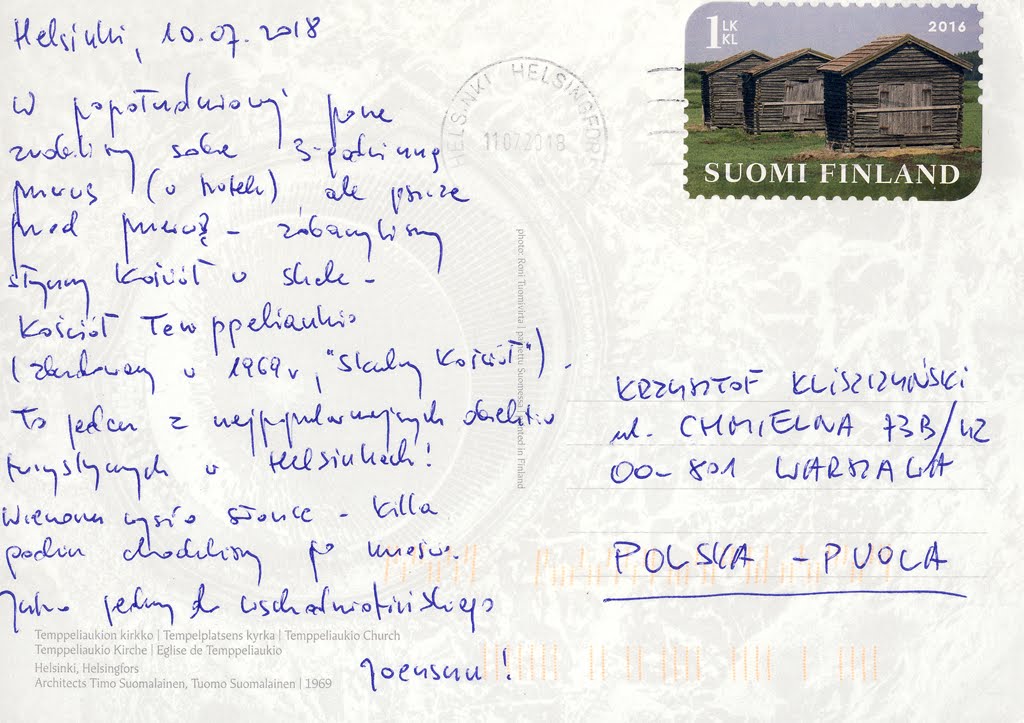 Helsinki, 10.07.2018
W popołudniowej porze
zrobiliśmy sobie 3-godzinną
przerwę (w hotelu), ale jeszcze
przed przerwą - zobaczyliśmy
słynny Kościół w skale -
Kościół Temppeliaukio
(zbudowany w 1969 r, "Skalny Kościół").
To jeden z najpopularniejszych obiektów
turystycznych w Helsinkach!
Wieczorem wyszło słońce - kilka
godzin chodziliśmy po mieście.
Jutro jedziemy do wschodniofińskiego
Joensuu!
1 LK
KL
2016
SUOMI FINLAND
HELSINKI HELSINGFORS
11072018
photo: Roni Tuomivirta | painettu Suomessa, printed in Finland
KRZYSZTOF KLISZCZYŃSKI
ul. CHMIELNA 73B/42
00-801 WARSZAWA
POLSKA - PUOLA
Temppeliaukion kirkko | Tempelplatsens kyrka | Temppeliaukio Church
Temppeliaukio Kirche | Eglise de Temppeliaukio
Helsinki, Helsingfors
Architects Timo Suomalainen, Tuomo Suomalainen | 1969